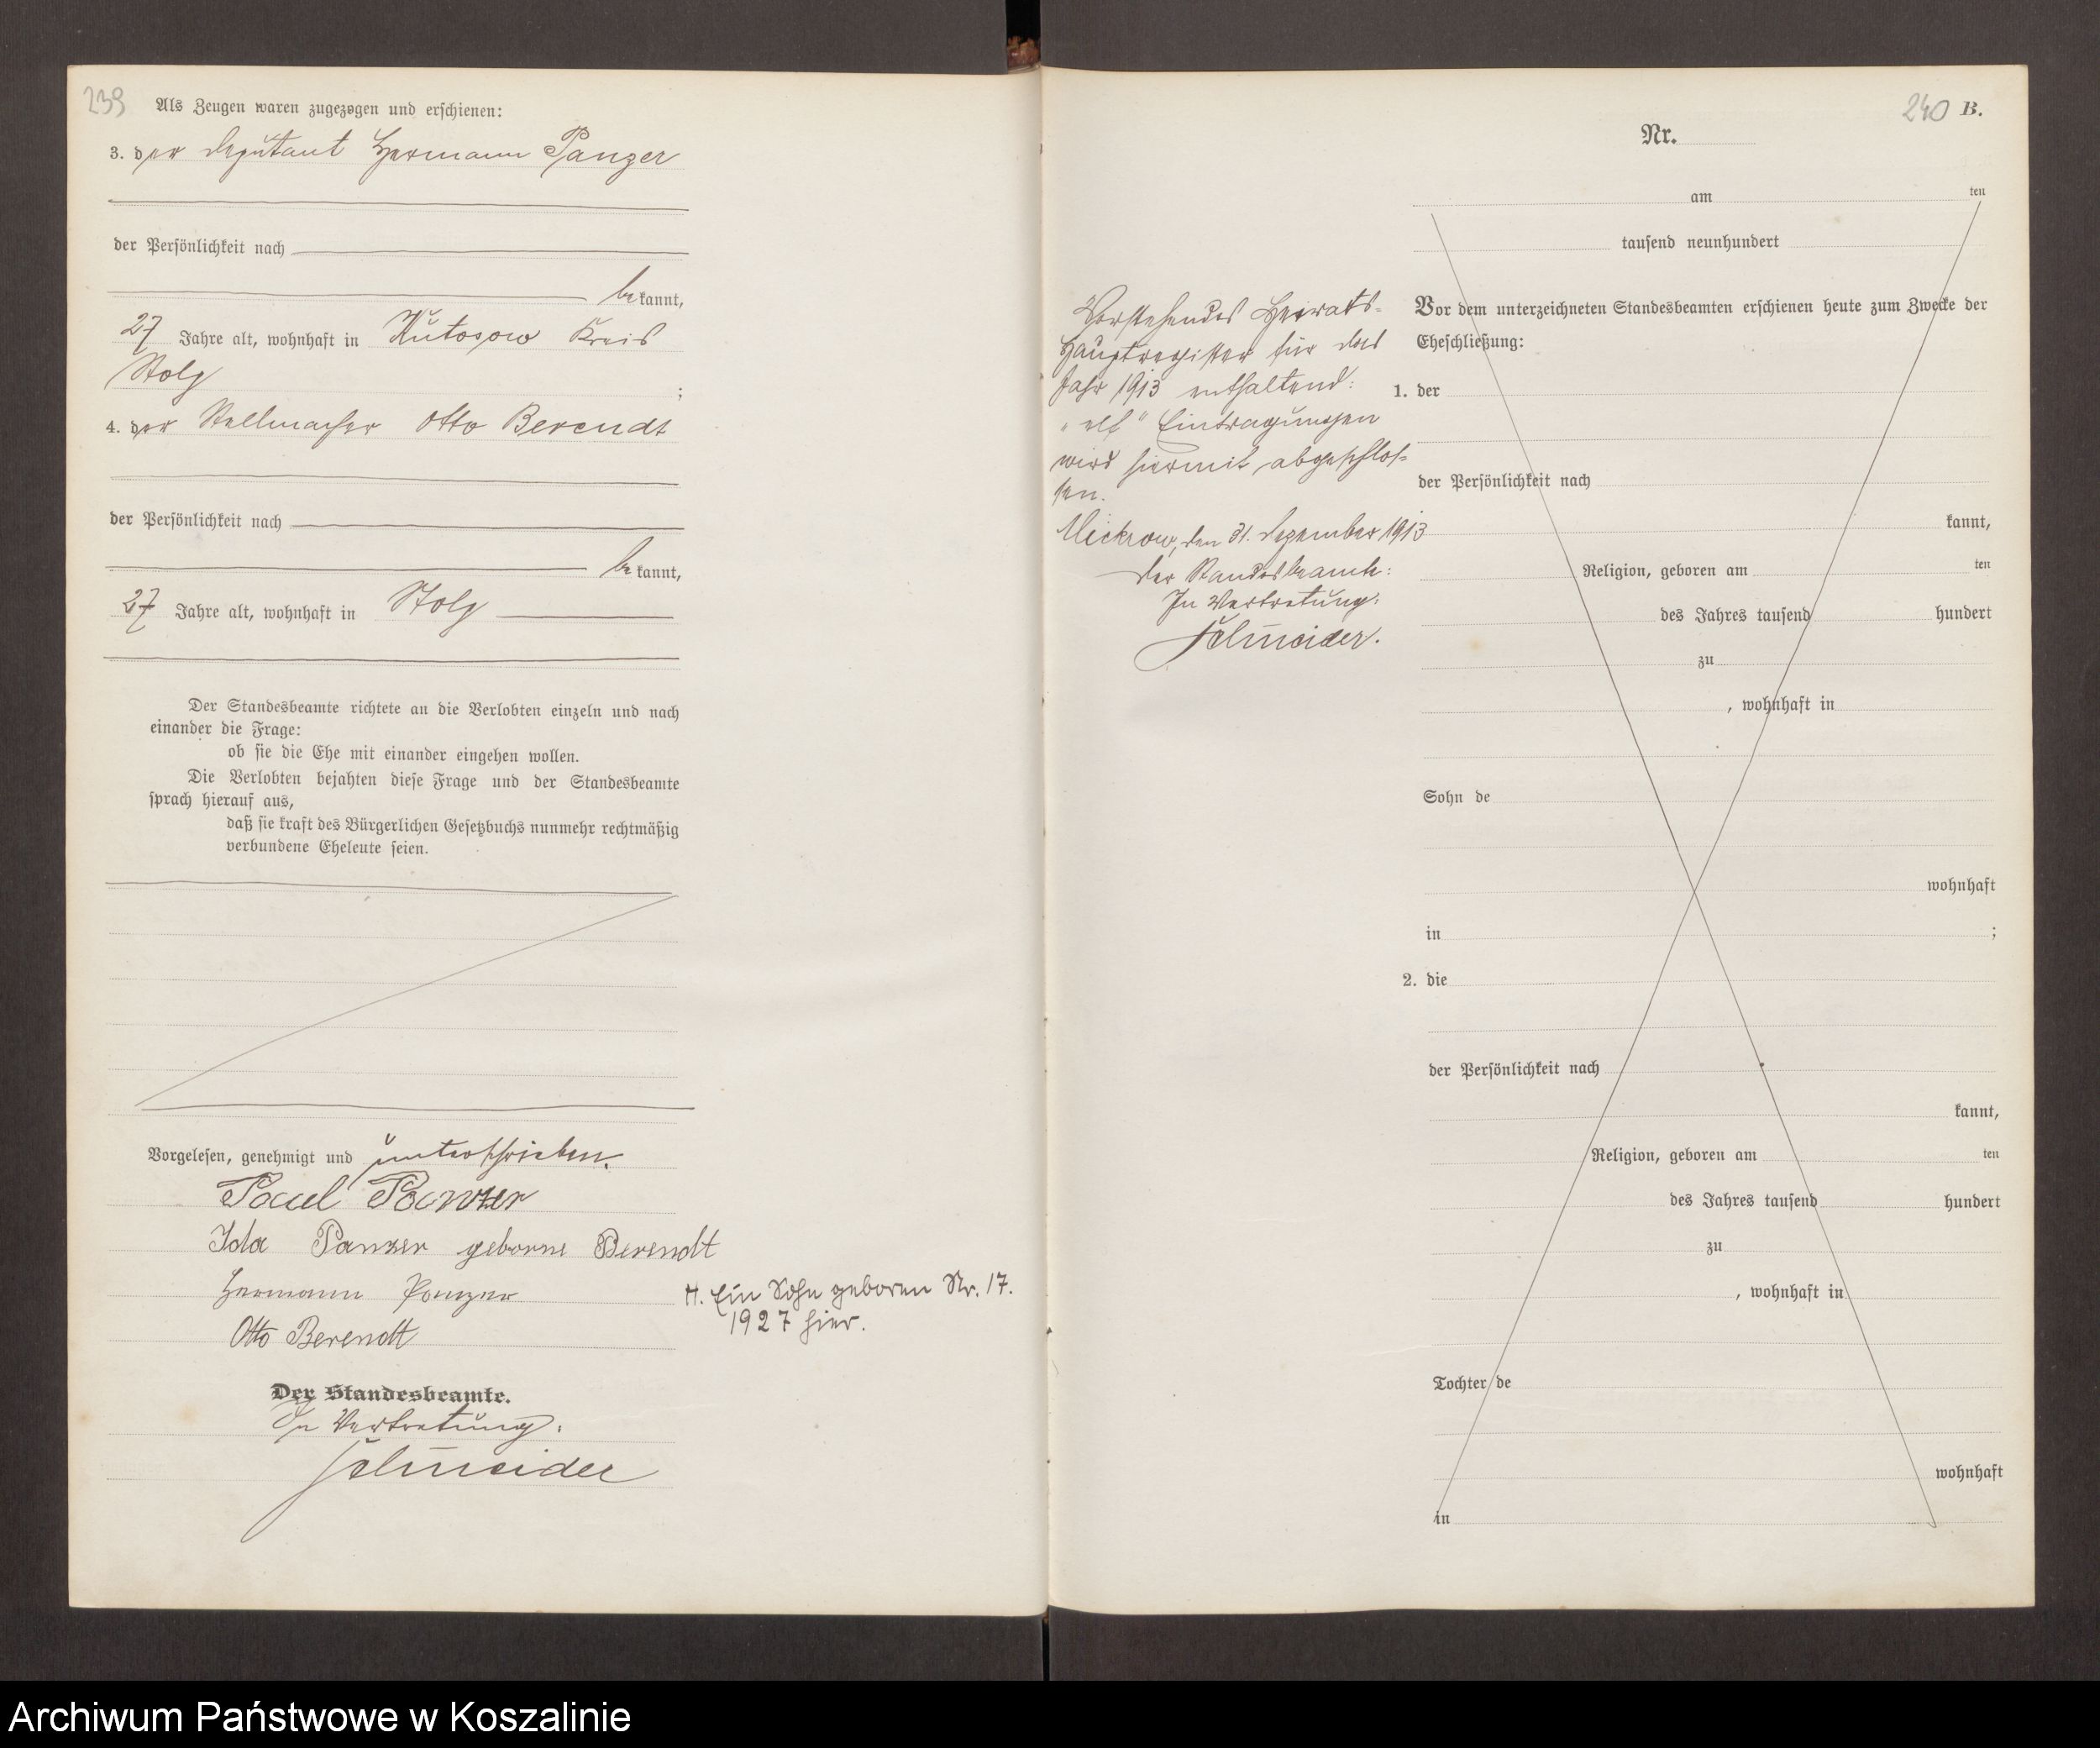 239
Als Zeugen waren zugezogen und erschienen:
3. der Deputant Hermann Panzer
der Persönlichkeit nach
be kannt,
27 Jahre alt, wohnhaft in Kutosow Kreis
Stolp
;
4. der Stellmacher Otto Berendt
der Persönlichkeit nach
be kannt,
27 Jahre alt, wohnhaft in Stolp
Der Standesbeamte richtete an die Verlobten einzeln und nach
einander die Frage:
ob sie die Ehe mit einander eingehen wollen.
Die Verlobten bejahten diese Frage und der Standesbeamte
sprach hierauf aus,
daß sie kraft des Bürgerlichen Gesetzbuchs nunmehr rechtmäßig
verbundene Eheleute seien.
Vorgelesen, genehmigt und unterschrieben.
Paul Panzer
Ida Panzer geborne Berendt
Hermann Panzer
Otto Berendt
Ein Sohn geboren Nr. 17.
1927 hier.
Der Standesbeamte.
In Vertretung:
Schneider
240 B.
Nr.
am ten
tausend neunhundert
Vorstehendes Heirats-
Hauptregister für das
Jahr 1913 enthaltend:
"elf" Eintragungen
wird hiermit abgeschlos-
sen.
Mickrow, den 31. Dezember 1913
Der Standesbeamte:
In Vertretung:
Schneider.
Vor dem unterzeichneten Standesbeamten erschienen heute zum Zwecke der
Eheschließung:
1. der
der Persönlichkeit nach
kannt,
Religion, geboren am ten
des Jahres tausend hundert
zu
, wohnhaft in
Sohn de
wohnhaft
in ;
2. die
der Persönlichkeit nach
kannt,
Religion, geboren am ten
des Jahres tausend hundert
zu
, wohnhaft in
Tochter de
wohnhaft
in
Archiwum Państwowe w Koszalinie